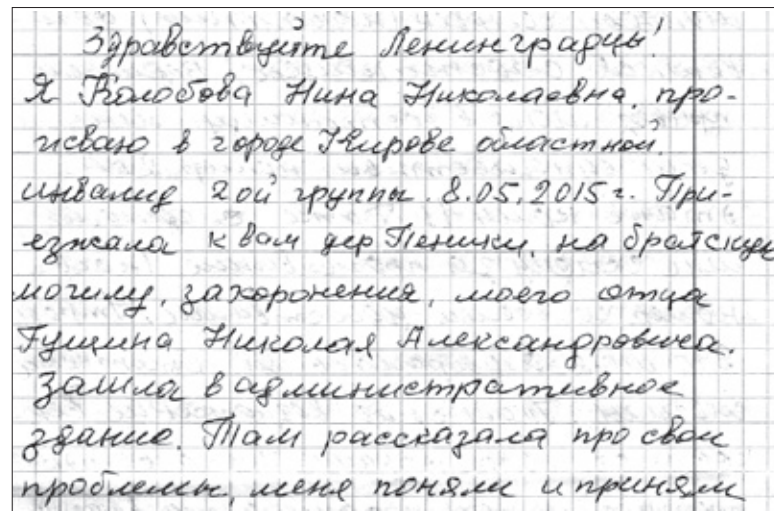 Здравствуйте Ленинградцы!
Я Колобова Нина Николаевна, про-
живаю в городе Кирове областной.
инвалид 2ой группы. 8.05.2015г. При-
езжала к Вам дер Пеники, на братскую
могилу, захоронения, моего отца
Гущина Николая Александровича.
Зашла в административное
здание. Там рассказала про свои
проблемы, меня поняли и приняли